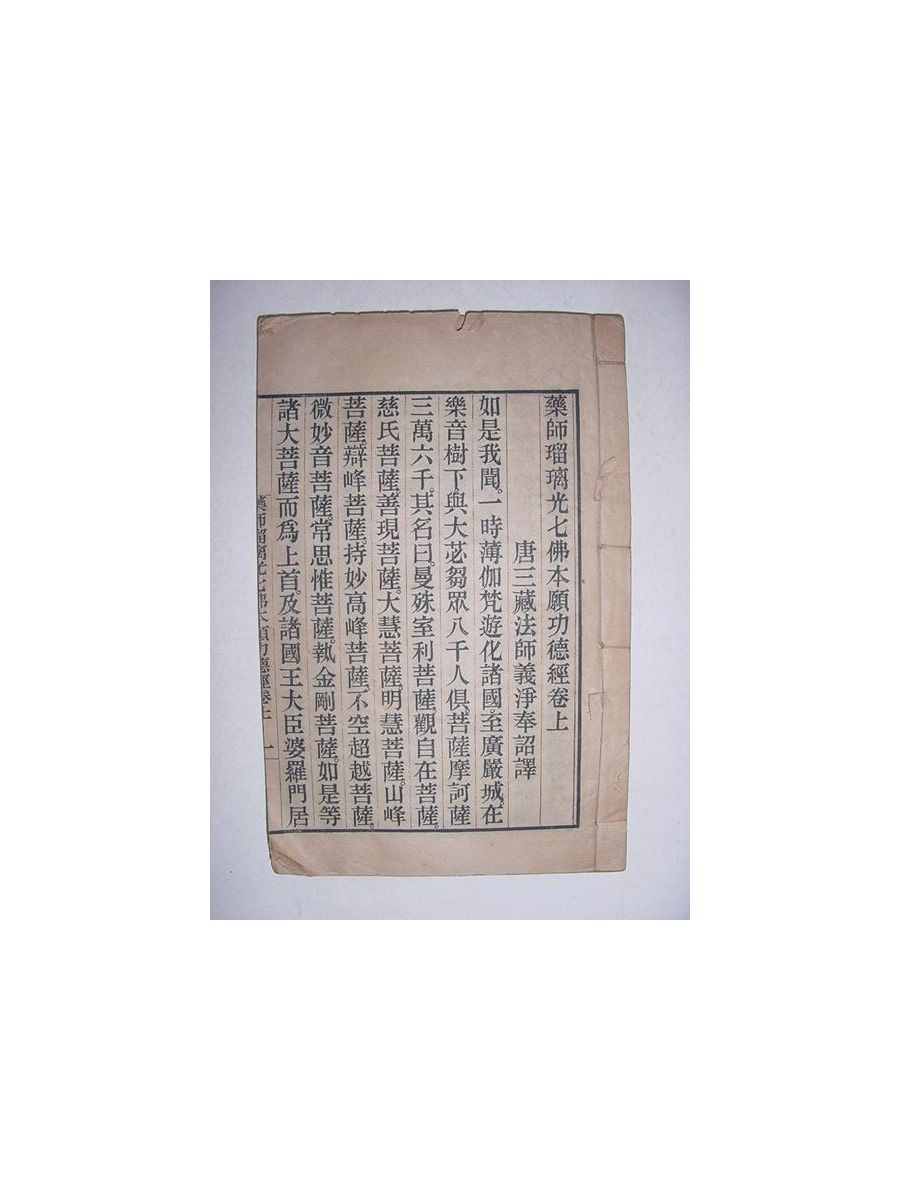 藥師瑠璃光七佛本願功德經卷上
唐三藏法師義淨奉詔譯
如是我聞。一時薄伽梵遊化諸國。至廣嚴城。在
樂音樹下。與大苾芻眾八千人俱。菩薩摩訶薩
三萬六千。其名曰。曼殊室利菩薩。觀自在菩薩。
慈氏菩薩。善現菩薩。大慧菩薩。明慧菩薩。山峰
菩薩。辯峰菩薩。持妙高峰菩薩。不空超越菩薩。
微妙音菩薩。常思惟菩薩。執金剛菩薩。如是等
諸大菩薩而為上首。及諸國王大臣婆羅門居
藥師瑠璃光七佛本願功德經卷上 一